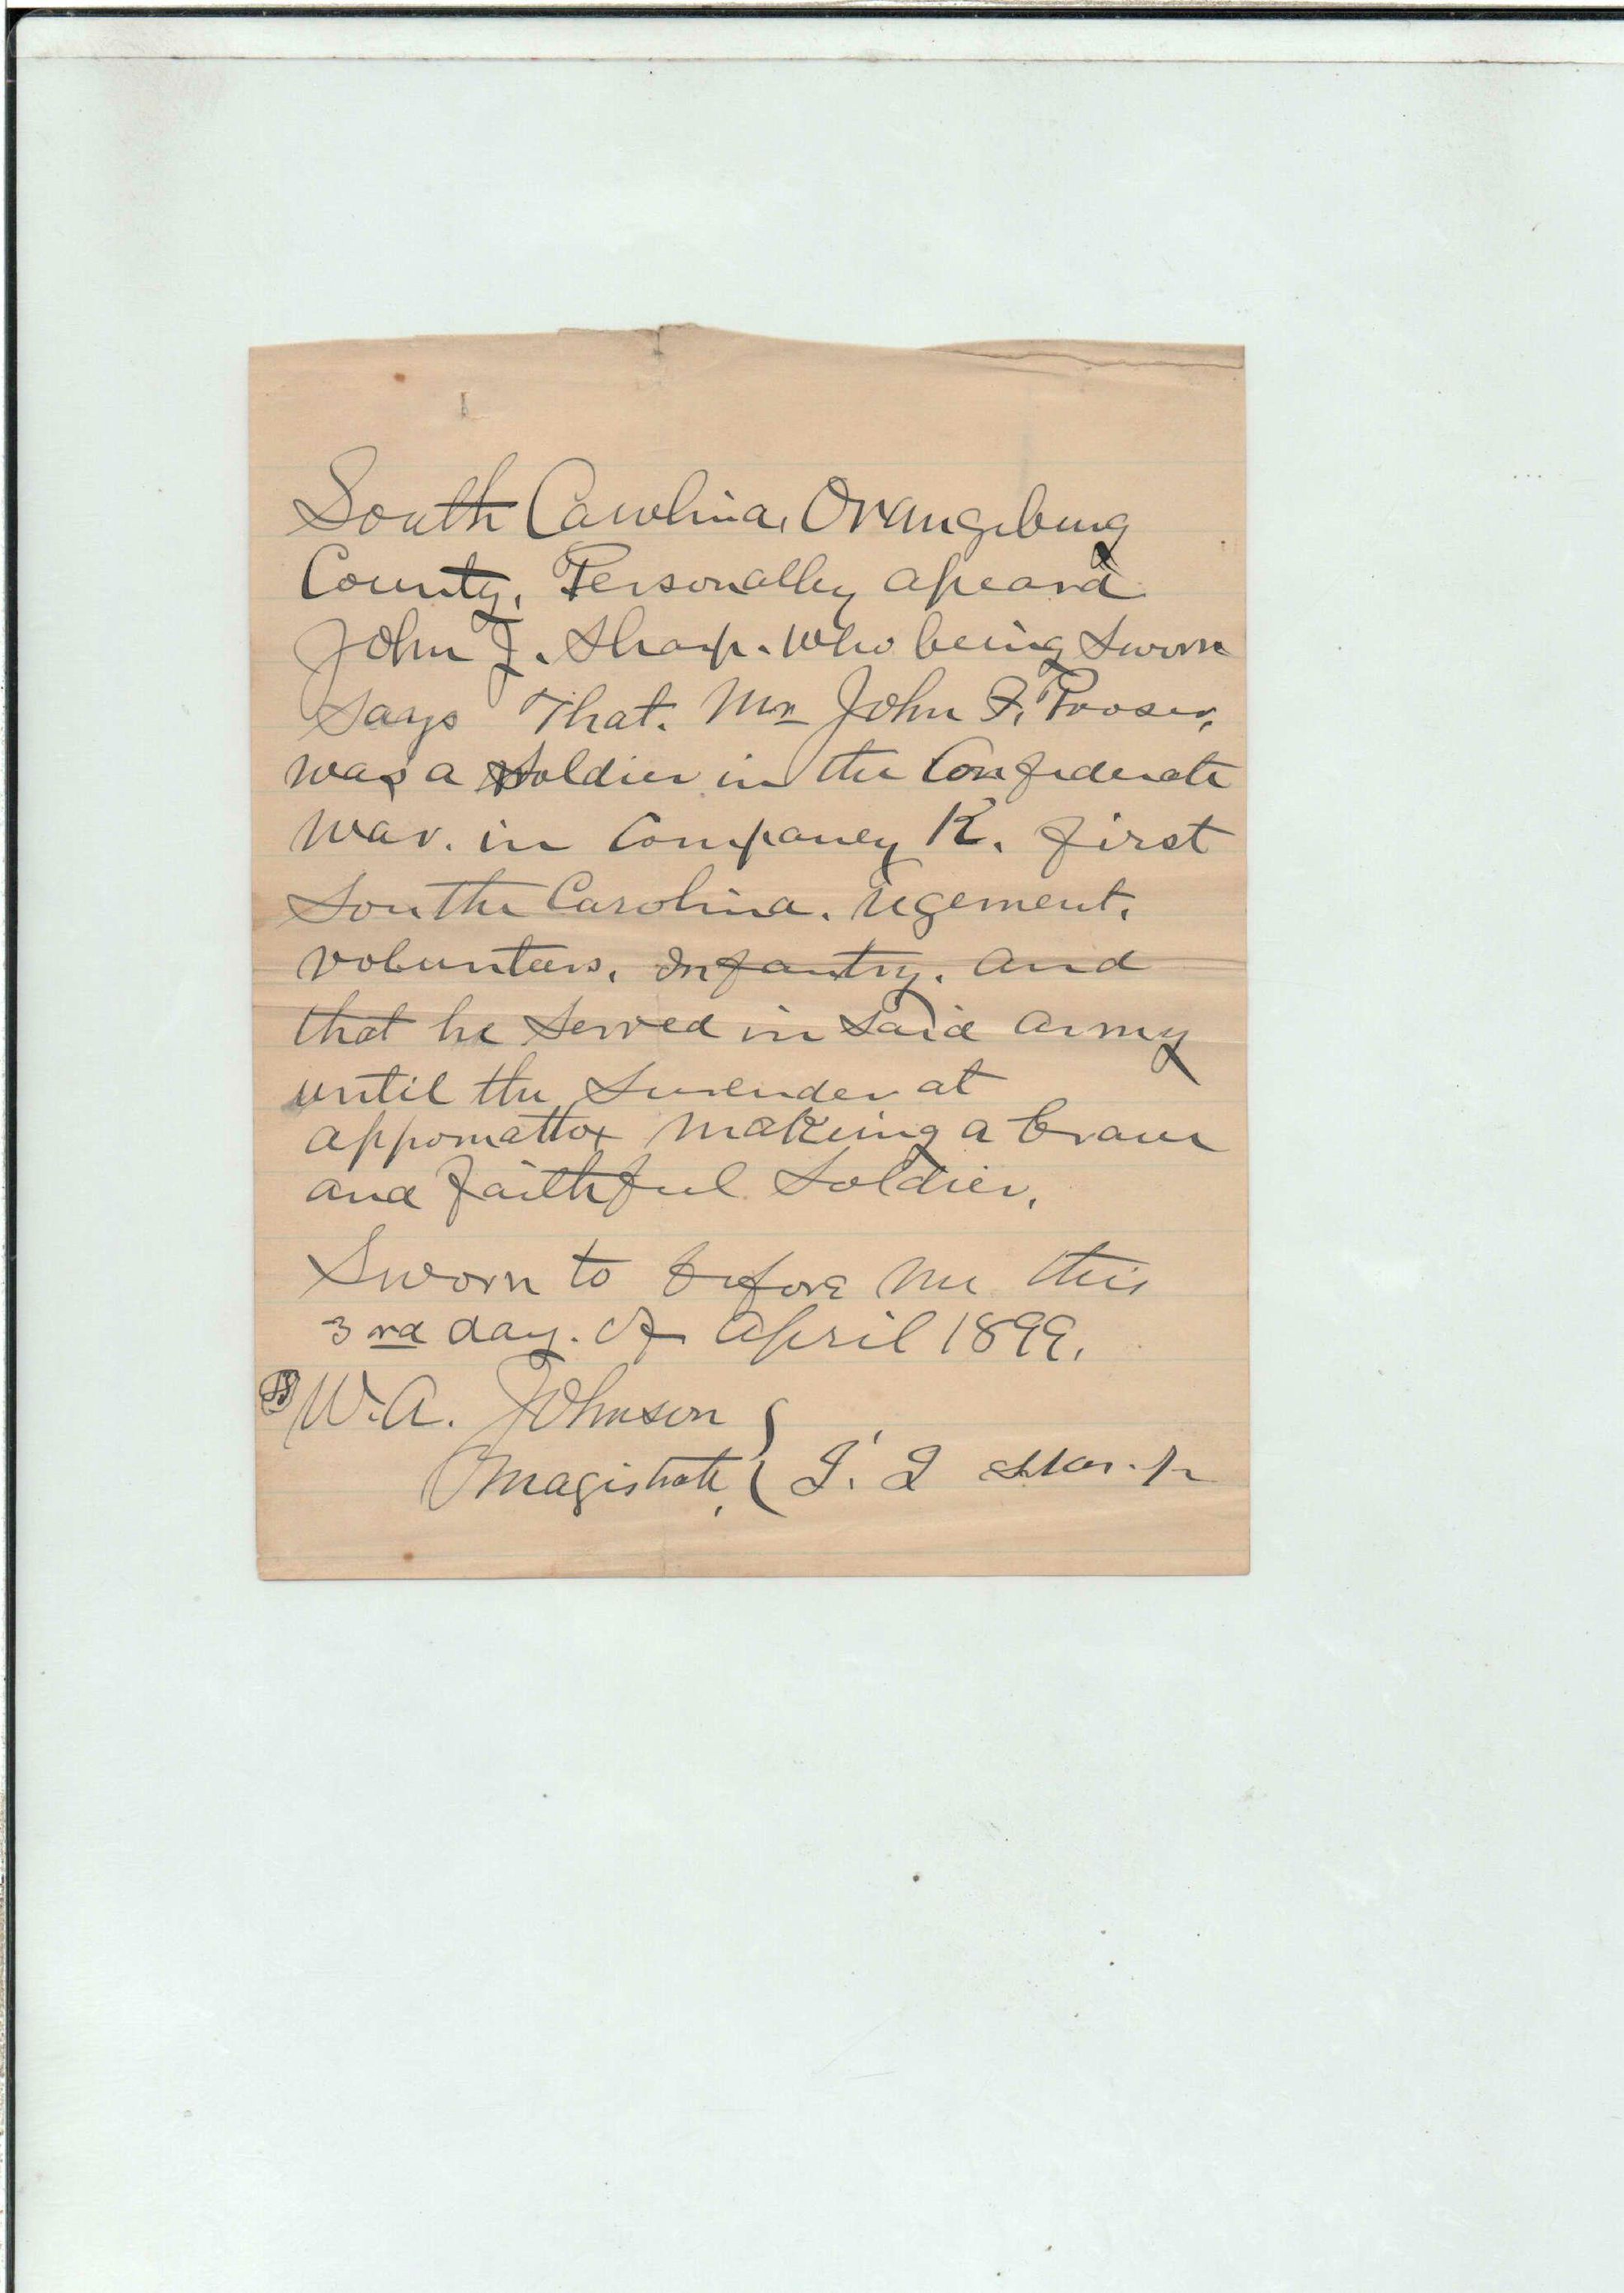 South Carolina, Orangeburg
County. Personally apeard
John J. Sharp. who being Sworn
Says That. Mr John F. Prooser,
was a Soldier in the Confederate
War. in Companey K. first
South Carolina. regement.
volunteers. Infantry. and
that he Served in Said army
until the Surender at
appomattox makeing a brave
and faithful Soldier.
Sworn to before me this
3rd day. of April 1899.
W. A. Johnson
Magistrate, J. J Sharp